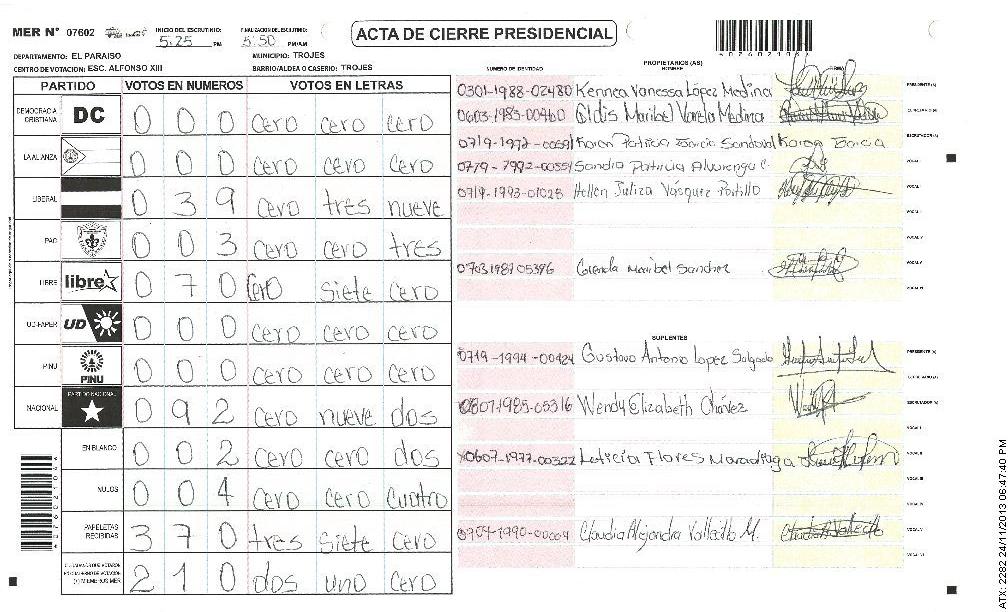 MER N° 07602
INICIO DEL ESCRUTINIO: 5:25 PM
FINALIZACIÓN DEL ESCRUTINIO: 5:50 PM/AM
ACTA DE CIERRE PRESIDENCIAL
DEPARTAMENTO: EL PARAISO
MUNICIPIO: TROJES
CENTRO DE VOTACIÓN: ESC. ALFONSO XIII
BARRIO/ALDEA O CASERIO: TROJES
PARTIDO VOTOS EN NUMEROS VOTOS EN LETRAS
DEMOCRACIA CRISTIANA DC 0 0 0 cero cero cero
LA ALIANZA 0 0 0 cero cero cero
LIBERAL 0 3 9 cero tres nueve
PAC 0 0 3 cero cero tres
LIBRE libre 0 7 0 cero siete cero
UD-FAPER UD 0 0 0 cero cero cero
PINU PINU 0 0 0 cero cero cero
NACIONAL PARTIDO NACIONAL 0 9 2 cero nueve dos
EN BLANCO 0 0 2 cero cero dos
NULOS 0 0 4 cero cero cuatro
PAPELETAS RECIBIDAS 3 7 0 tres siete cero
2 1 0 dos uno cero
PROPIETARIOS (AS)
NUMERO DE IDENTIDAD NOMBRE FIRMA
0301-1988-02480 Kennea Vanessa López Medina PRESIDENTE (A)
0603-1985-00460 Eldis Maribel Varela Medina SECRETARIO (A)
0719-1992-00591 Karen Patricia Garcia Sandoval Karen Garcia ESCRUTADOR (A)
0719-1992-00554 Sandra Patricia Alvarenga C. VOCAL I
0719-1993-01025 Hellen Juliza Vásquez Portillo VOCAL
VOCAL
VOCAL
0703198705396 Brenda Maribel Sanchez VOCAL V
VOCAL VI
SUPLENTES
0719-1994-00424 Gustavo Antonio Lopez Salgado PRESIDENTE (A)
SECRETARIO (A)
0801-1985-05316 Wendy Elizabeth Chávez ESCRUTADOR (A)
VOCAL I
0607-1977-00322 Leticia Flores Maradiaga VOCAL II
VOCAL III
VOCAL IV
0704-1990-00004 Claudia Alejandra Valladlo M. VOCAL V
VOCAL VI
ATX: 2282 24/11/2013 06:47:40 PM